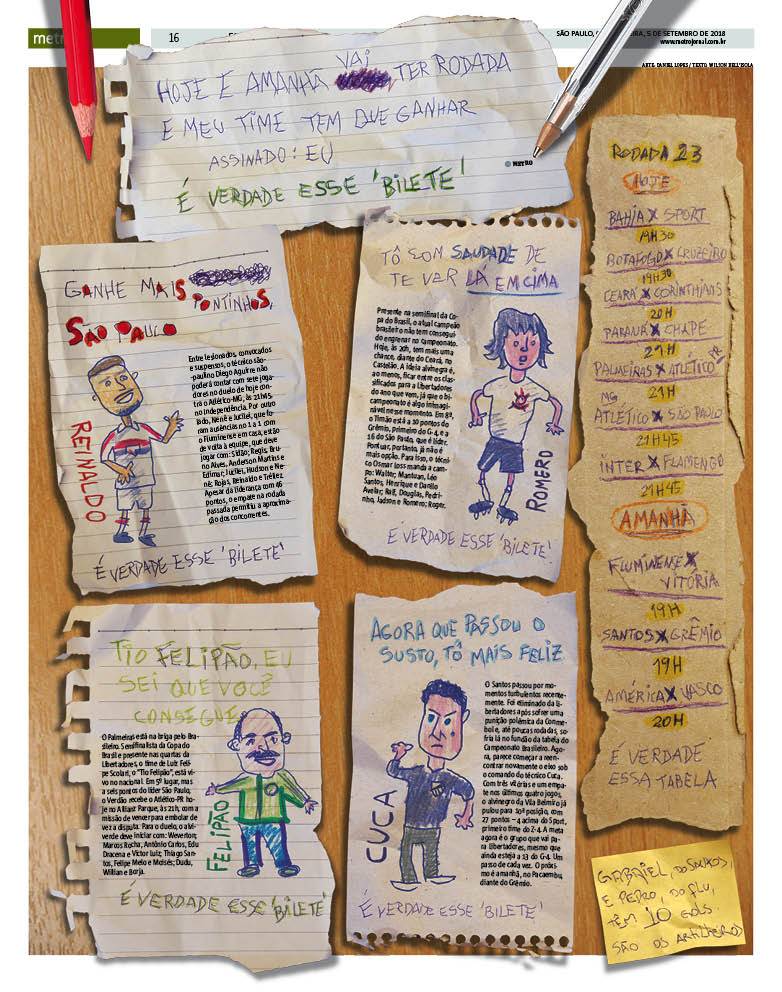 metro
16
SÃO PAULO,
5 DE SETEMBRO DE 2018
www.metrojornal.com.br
ARTE: DANIEL LOPES / TEXTO: WILSON DELL'ISOLA
HOJE E AMANHÃ VAI TER RODADA
E MEU TIME TEM QUE GANHAR
ASSINADO: EU
© METRO
É VERDADE ESSE 'BILETE'
GANHE MAIS
PONTINHOS,
SÃO PAULO
REINALDO
Entre lesionados, convocados
e suspensos, o técnico são-
paulino Diego Aguirre não
poderá contar com sete joga-
dores no duelo de hoje con-
tra o Atlético-MG, às 21h45,
no Independência. Por outro
lado, Nenê e Jucilei, que fo-
ram ausências no 1 a 1 com
o Fluminense em casa, estão
de volta à equipe, que deve
jogar com: Sidão; Regis, Bru-
no Alves, Anderson Martins e
Edimar; Jucilei, Hudson e Ne-
nê; Rojas, Reinaldo e Tréllez.
Apesar da liderança com 46
pontos, o empate na rodada
passada permitiu a aproxima-
ção dos concorrentes.
É VERDADE ESSE 'BILETE'
TÔ COM SAUDADE DE
TE VER LÁ EM CIMA
Presente na semifinal da Co-
pa do Brasil, o atual campeão
brasileiro não tem consegui-
do engrenar no campeonato.
Hoje, às 20h, tem mais uma
chance, diante do Ceará, no
Castelão. A ideia alvinegra é,
ao menos, ficar entre os clas-
sificados para a Libertadores
do ano que vem, já que o bi-
campeonato é algo inimagi-
nável nesse momento. Em 8º,
o Timão está a 10 pontos do
Grêmio, primeiro do G-4, e a
16 do São Paulo, que é líder.
Pontuar, portanto, já não é
mais opção. Para isso, o técni-
co Osmar Loss manda a cam-
po: Walter; Mantuan, Léo
Santos, Henrique e Danilo
Avelar; Ralf, Douglas, Pedri-
nho, Jadson e Romero; Roger.
ROMERO
É VERDADE ESSE 'BILETE'
TIO FELIPÃO, EU
SEI QUE VOCÊ
CONSEGUE
O Palmeiras está na briga pelo Bra-
sileiro. Semifinalista da Copa do
Brasil e presente nas quartas da
Libertadores, o time de Luiz Feli-
pe Scolari, o "Tio Felipão", está vi-
vo no nacional. Em 5º lugar, mas
a seis pontos do líder São Paulo,
o Verdão recebe o Atlético-PR ho-
je no Allianz Parque, às 21h, com a
missão de vencer para embolar de
vez a disputa. Para o duelo, o alvi-
verde deve iniciar com: Weverton;
Marcos Rocha, Antônio Carlos, Edu
Dracena e Victor Luiz; Thiago San-
tos, Felipe Melo e Moisés; Dudu,
Willian e Borja.
FELIPÃO
É VERDADE ESSE 'BILETE'
AGORA QUE PASSOU O
SUSTO, TÔ MAIS FELIZ
CUCA
O Santos passou por mo-
mentos turbulentos recente-
mente. Foi eliminado da Li-
bertadores após sofrer uma
punição polêmica da Conme-
bol e, até poucas rodadas, so-
fria lá no fundão da tabela do
Campeonato Brasileiro. Agora,
parece começar a reen-
contrar novamente o eixo sob
o comando do técnico Cuca.
Com três vitórias e um empa-
te nos últimos quatro jogos,
o alvinegro da Vila Belmiro já
pulou para 10ª posição, com
27 pontos – 4 acima do Sport,
primeiro time do Z-4. A meta
agora é o grupo que vai pa-
ra Libertadores, mesmo que
ainda esteja a 13 do G-4. Um
passo de cada vez. O próxi-
mo é amanhã, no Pacaembu,
diante do Grêmio.
É VERDADE ESSE 'BILETE'
RODADA 23
HOJE
BAHIA X SPORT
19H30
BOTAFOGO X CRUZEIRO
19H30
CEARÁ X CORINTHIANS
20H
PARANÁ X CHAPE
21H
PALMEIRAS X ATLÉTICO PR
21H
MG
ATLÉTICO X SÃO PAULO
21H45
INTER X FLAMENGO
21H45
AMANHÃ
FLUMINENSE X
VITÓRIA
19H
SANTOS X GRÊMIO
19H
AMÉRICA X VASCO
20H
É VERDADE
ESSA TABELA
GABRIEL, DO SANTOS,
E PEDRO, DO FLU,
TÊM 10 GOLS.
SÃO OS ARTILHEIROS